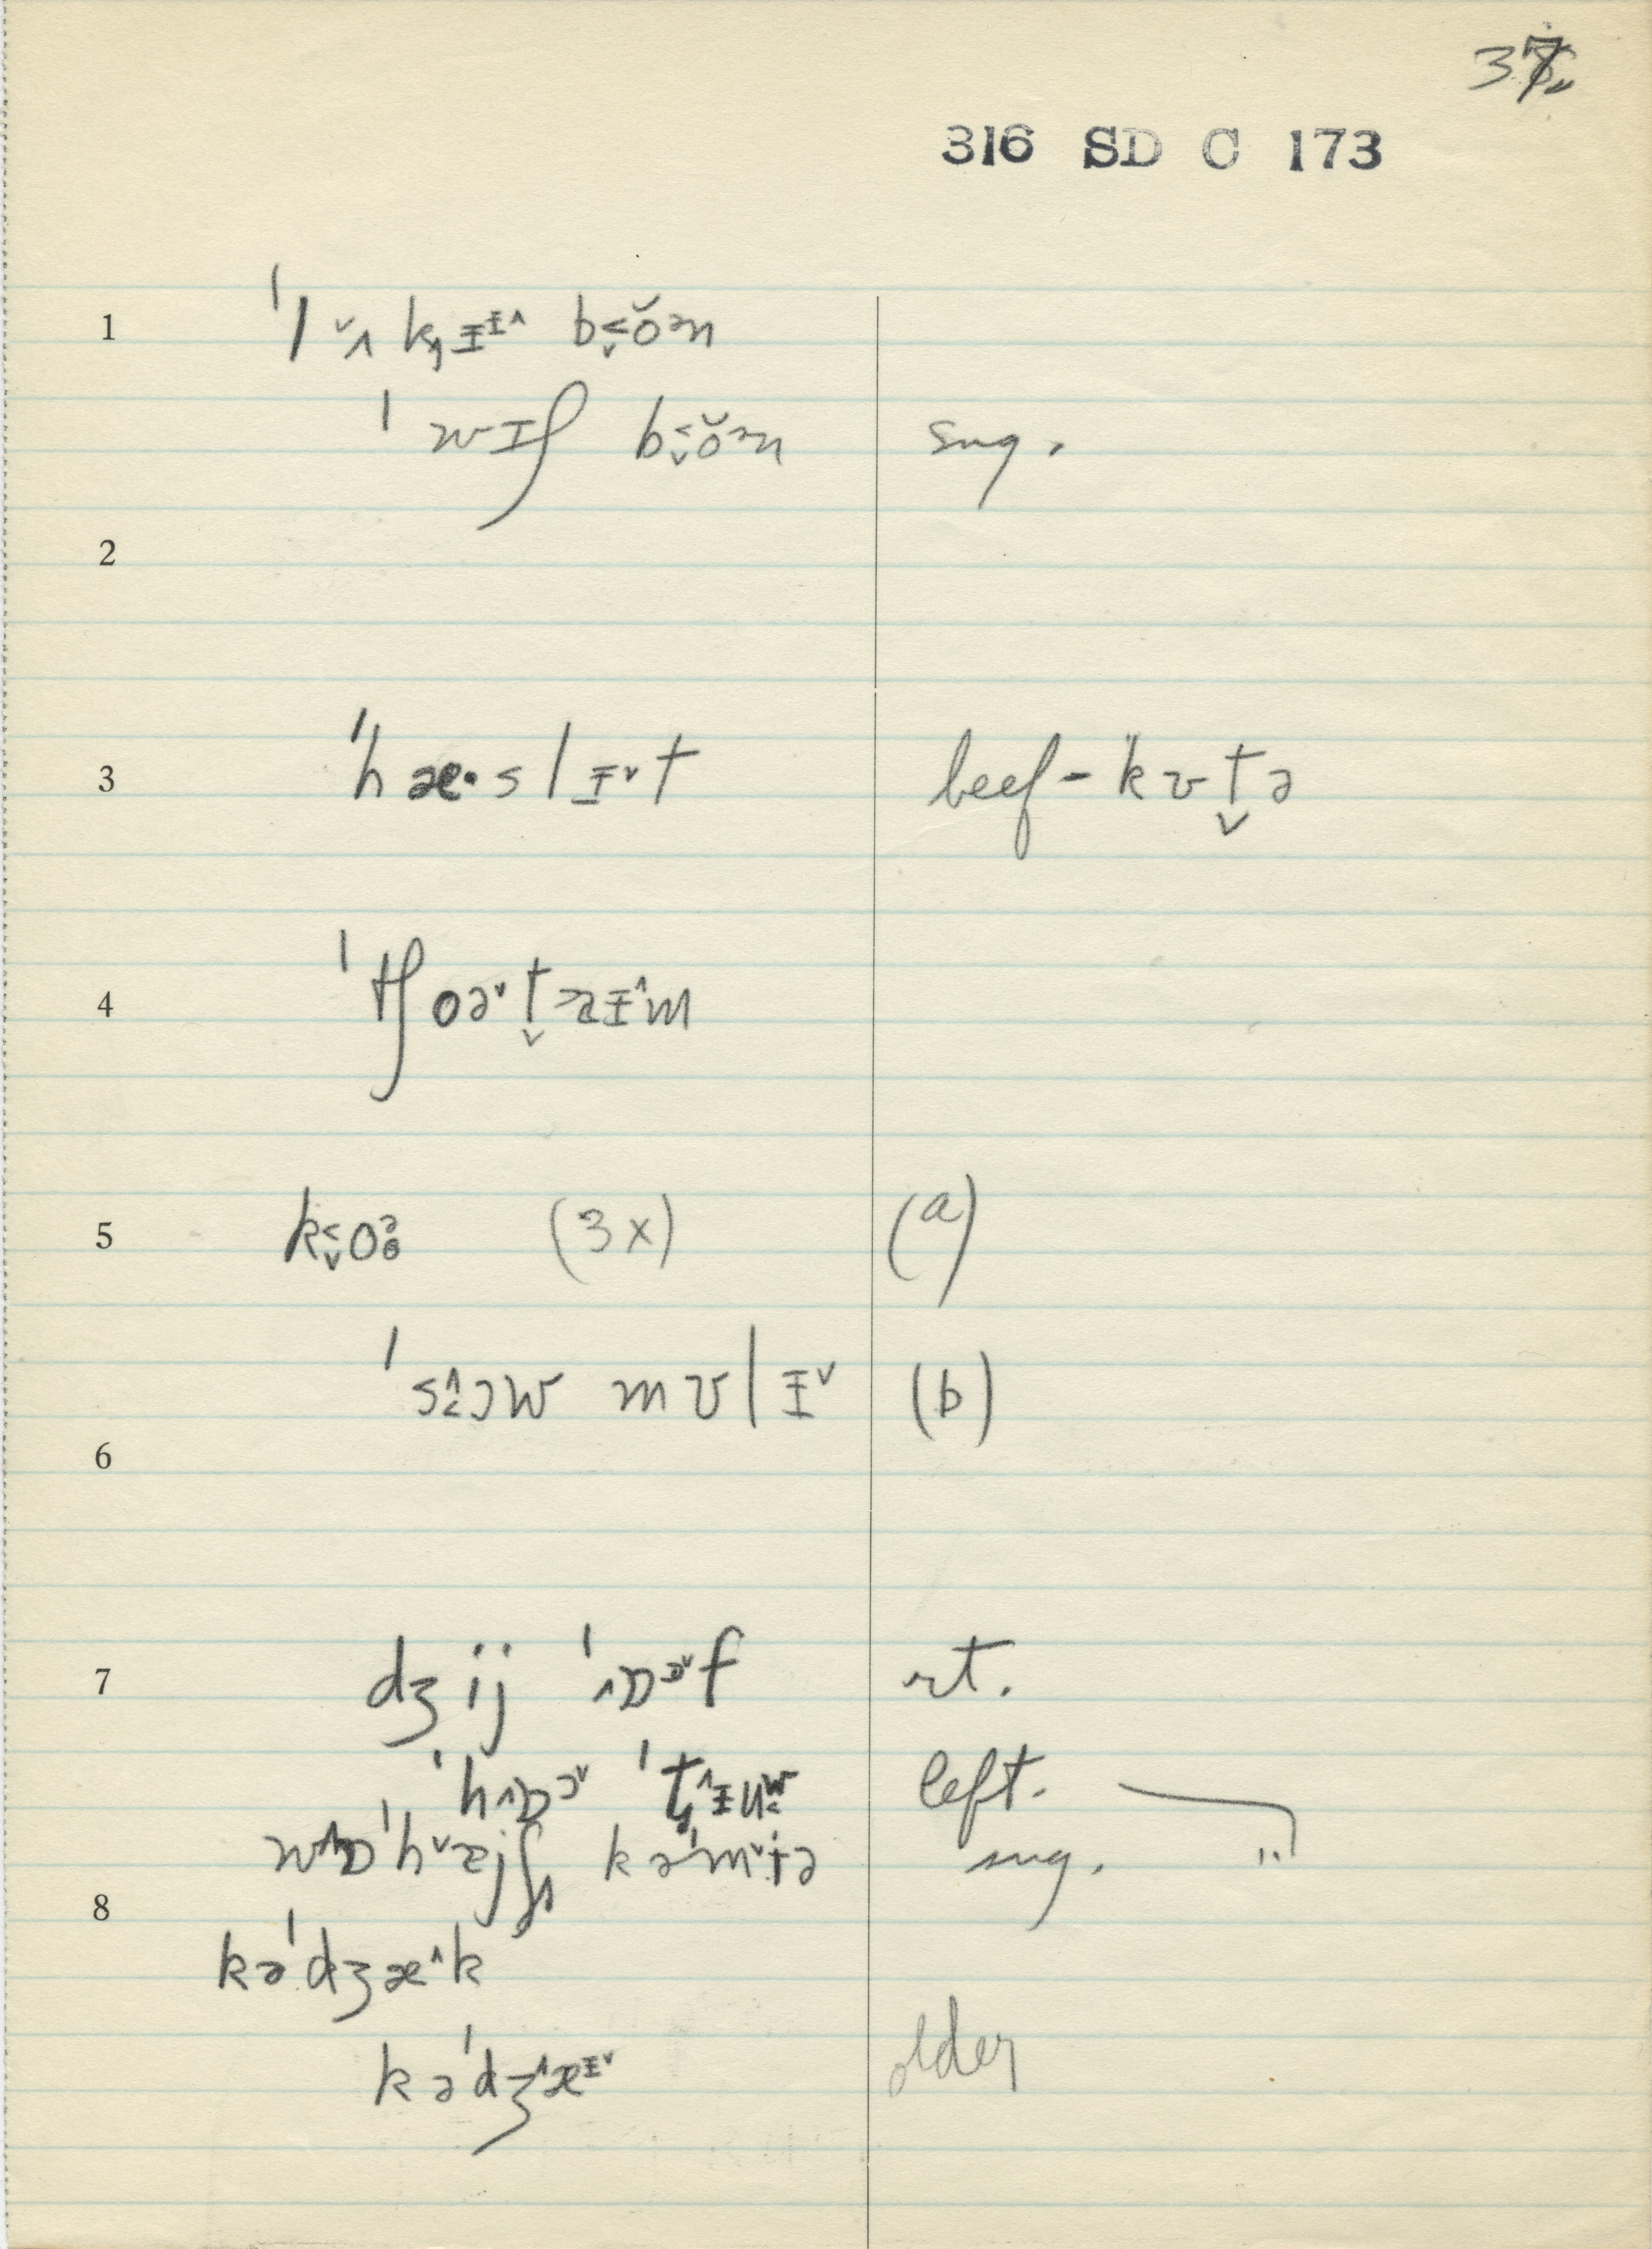 37
316 SD C 173
1 ˈlʌ̌kɪɪ̂ bŏən
ˈwɪʃ bŏən sug.
2
3 ˈhæ·slɪˇt beef-kʊt̬ə
4 ˈtʃoəˇt̬aɪ^m
5 koə (3x) (a)
ˈsɔw mʊlɪˇ (b)
6
7 dʒij ˈɒɒˇf rt.
ˈhɒɔˇ ˈtɪuw left.
ˈhˇæjʃ kəˈmˇtə sug. "
8
kəˈdʒæ^k
kəˈdʒ^æɪˇ older